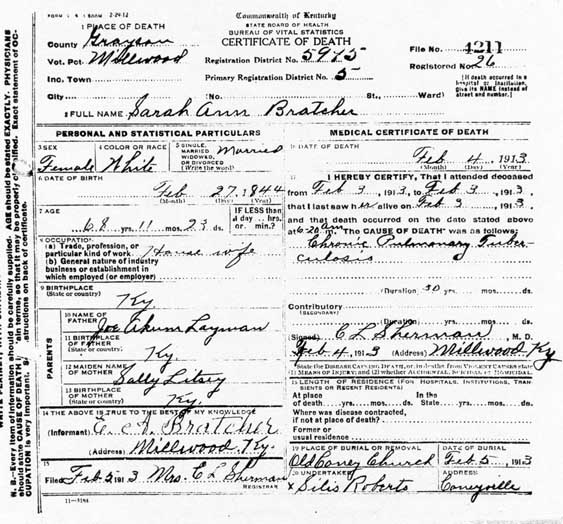 FORM 1 2-24-12
Commonwealth of Kentucky
STATE BOARD OF HEALTH
BUREAU OF VITAL STATISTICS
CERTIFICATE OF DEATH
1 PLACE OF DEATH
County Grayson
Vot. Pct Millwood
Inc. Town
City No. St., Ward)
Registration District No. 5975
Primary Registration District No. 5
File No. 4211
Registered No. 26
[If death occurred in a hospital or institution, give its NAME instead of street and number.]
2 FULL NAME Sarah Ann Bratcher
PERSONAL AND STATISTICAL PARTICULARS
3 SEX
Female
4 COLOR OR RACE
White
5 SINGLE, MARRIED WIDOWED, OR DIVORCED (Write the word) Married
6 DATE OF BIRTH
Feb 27, 1844
(Month) (Day) (Year)
7 AGE
68 yrs. 11 mos. 23 ds.
IF LESS than 1 day, hrs. or min.?
8 OCCUPATION
(a) Trade, profession, or particular kind of work. House wife
(b) General nature of industry business or establishment in which employed (or employer)
9 BIRTHPLACE
(State or country)
Ky
PARENTS
10 NAME OF FATHER
Joe Layman
11 BIRTHPLACE OF FATHER
(State or country)
Ky.
12 MAIDEN NAME OF MOTHER
Sally Litsey
13 BIRTHPLACE OF MOTHER
(State or country)
Ky.
14 THE ABOVE IS TRUE TO THE BEST OF MY KNOWLEDGE
(Informant) Bratcher
(Address) Millwood Ky.
15
Filed Feb. 5 1913 Mrs. C L Sherman
REGISTRAR
11-3184
MEDICAL CERTIFICATE OF DEATH
DATE OF DEATH
Feb 4, 1913
(Month) (Day) (Year)
I HEREBY CERTIFY, That I attended deceased
from Feb 3, 1913, to Feb 3, 1913,
that I last saw her alive on Feb 3, 1913,
and that death occurred on the date stated above
at 6:20 am The CAUSE OF DEATH* was as follows:
Chronic Pulmonary Tuber
culosis
(Duration) 30 yrs. mos. ds.
Contributory
(SECONDARY)
(Duration) yrs. mos. ds.
(Signed) C L Sherman, M. D.
Feb 4, 1913 (Address) Millwood Ky
*State the DISEASE CAUSING DEATH, or, in deaths from VIOLENT CAUSES state (1) MEANS OF INJURY; and (2) whether ACCIDENTAL, SUICIDAL or HOMICIDAL.
18 LENGTH OF RESIDENCE (FOR HOSPITALS, INSTITUTIONS, TRANSIENTS OR RECENT RESIDENTS)
At place of death yrs. mos. ds. In the State yrs. mos. ds.
Where was disease contracted, if not at place of death?
Former or usual residence
19 PLACE OF BURIAL OR REMOVAL
Old Caney Church
DATE OF BURIAL
Feb. 5, 1913
20 UNDERTAKER
x Silis Roberts
ADDRESS
Caneyville
N. B.—Every item of information should be carefully supplied. AGE should be stated EXACTLY. PHYSICIANS
should state CAUSE OF DEATH in plain terms, so that it may be properly classified. Exact statement of OC-
CUPATION is very important. See instructions on back of certificate.